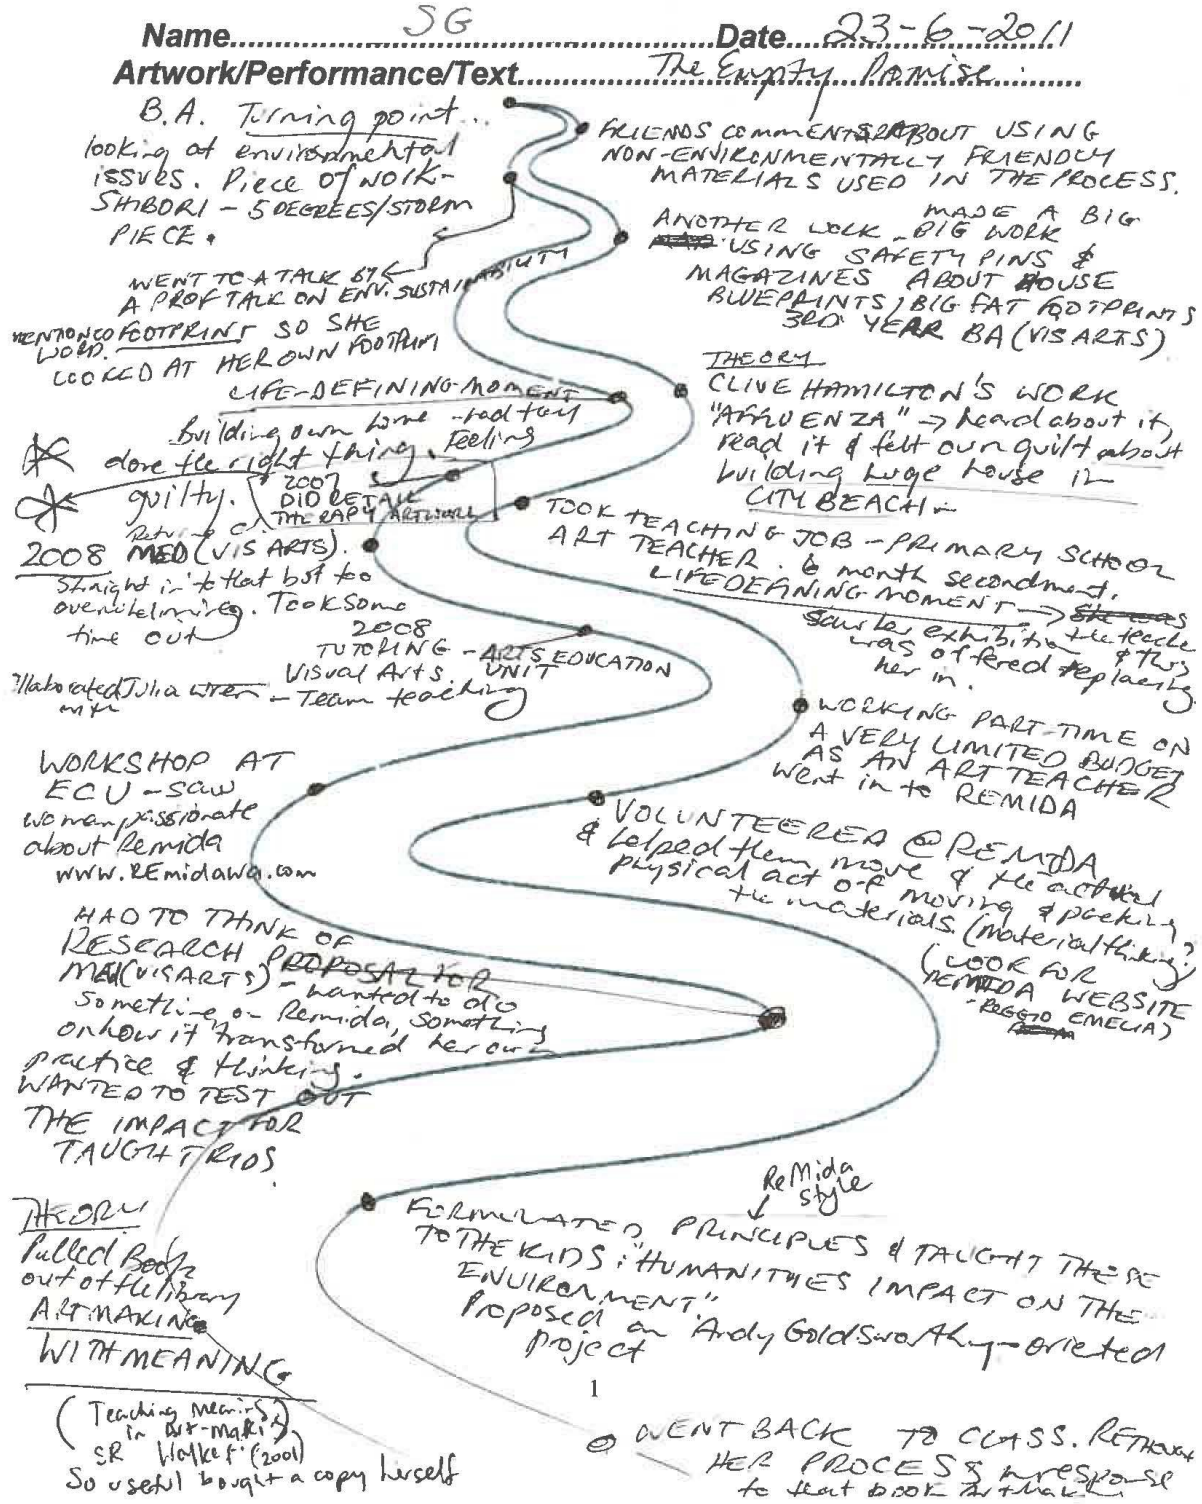 Name SG Date 23-6-2011
Artwork/Performance/Text The Empty Promise
B.A. Turning point...
looking at environmental
issues. Piece of work-
SHIBORI - 5 DEGREES/STORM
PIECE.
WENT TO A TALK BY
A PROF TALK ON ENV. SUSTAINABILITY
MENTIONED FOOTPRINT SO SHE
WORD.
LOOKED AT HER OWN FOOTPRINT
LIFE-DEFINING-MOMENT
Building own home - had they
done the right thing. Feeling
guilty.
2007
DID RETAIL
THERAPY ARTWORK
2008 MED (VIS ARTS).
Straight in to that but too
overwhelming. Took some
time out
2008
TUTORING - ARTS EDUCATION
Visual Arts. UNIT
Collaborated Julia Wren - Team teaching
with
WORKSHOP AT
ECU - saw
woman passionate
about Remida
www.REmidawa.com
HAD TO THINK OF
RESEARCH PROPOSAL FOR
MEd (VIS ARTS) - wanted to do
something on Remida, something
on how it transformed her own
practice & thinking.
WANTED TO TEST OUT
THE IMPACT FOR
TAUGHT KIDS.
THEORY
Pulled Book
out of the library
ART MAKING
WITH MEANING
(Teaching Meaning
in Art-Making)
SR Walker (2001)
So useful bought a copy herself
FRIENDS COMMENTS ABOUT USING
NON-ENVIRONMENTALLY FRIENDLY
MATERIALS USED IN THE PROCESS.
MADE A BIG
ANOTHER WORK - BIG WORK
USING SAFETY PINS &
MAGAZINES ABOUT HOUSE
BLUEPRINTS, BIG FAT FOOTPRINTS
3RD YEAR BA (VIS ARTS)
THEORY
CLIVE HAMILTON'S WORK
"AFFLUENZA" → heard about it,
read it & felt own guilt about
building huge house in
CITY BEACH -
TOOK TEACHING JOB - PRIMARY SCHOOL
ART TEACHER. 6 month secondment.
LIFE DEFINING MOMENT → She was
Saw her exhibition & this
was offered replacing
her in.
WORKING PART-TIME ON
A VERY LIMITED BUDGET
AS AN ART TEACHER
Went in to REMIDA
VOLUNTEERED @ REMIDA
& helped them move & the actual
physical act of moving & packing
the materials. (material thinking?)
(LOOK FOR
REMIDA WEBSITE
- REGGIO EMELIA)
ReMida
style
FORMULATED PRINCIPLES & TAUGHT THESE
TO THE KIDS: "HUMANITIES IMPACT ON THE
ENVIRONMENT".
Proposed an Andy Goldsworthy-oriented
project
1
WENT BACK TO CLASS. RETHOUGHT
HER PROCESS in response
to that book